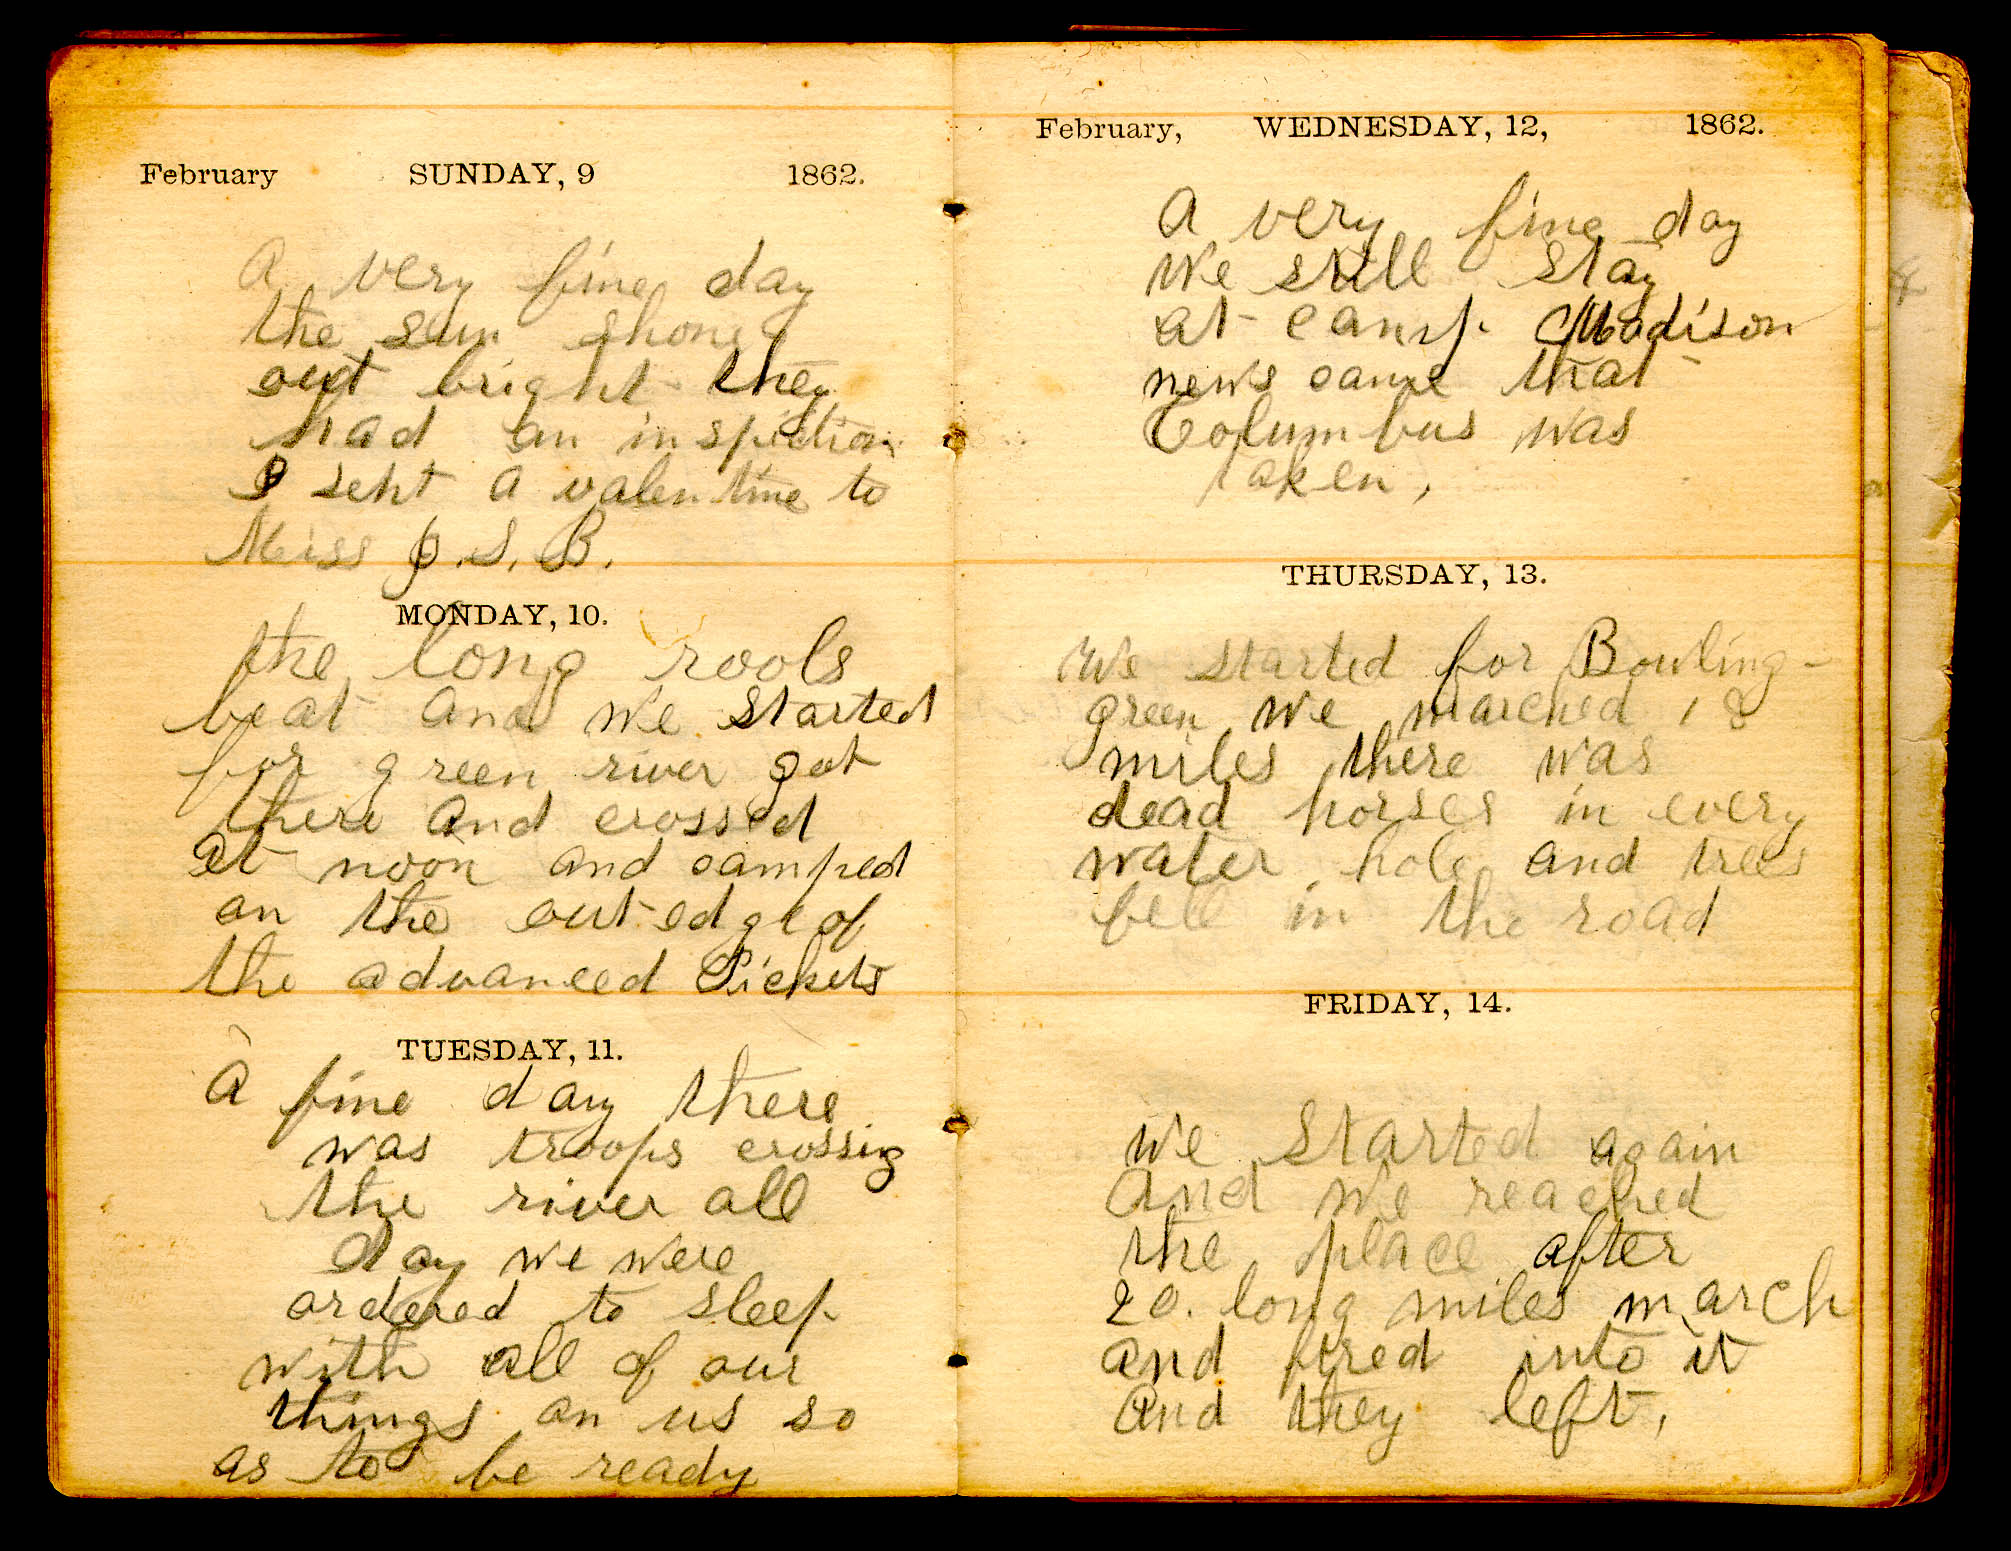 February SUNDAY, 9 1862.
A very fine day
the sun shone
out bright they
had an inspiction
I sent a valentine to
Miss J. S. B.
MONDAY, 10.
the long rools
beat and we started
for green river got
there and crossed
at noon and camped
on the out edge of
the advanced Pickets
TUESDAY, 11.
A fine day there
was troops crossing
the river all
day we were
ordered to sleep
with all of our
things on us so
as to be ready
February, WEDNESDAY, 12, 1862.
A very fine day
We still stay
at camp Madison
news came that
Columbus was
taken,
THURSDAY, 13.
We started for Bowling-
green we marched 18
miles there was
dead horses in every
water hole and trees
fell in the road
FRIDAY, 14.
We started again
And we reached
the place after
20. long miles march
and fired into it
and they left,